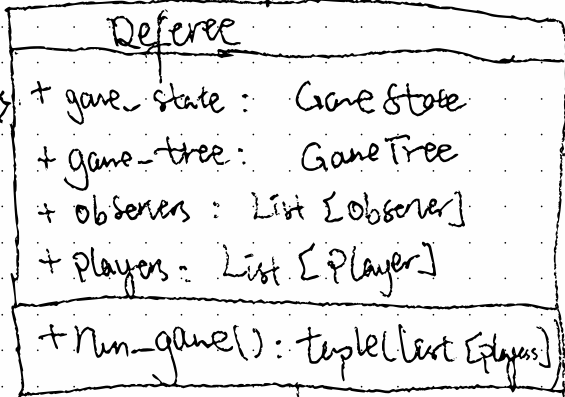 Referee
+ game_state : GameState
+ game_tree : GameTree
+ observers : List [Observer]
+ players : List [Player]
+ run_game() : tuple(List [players]